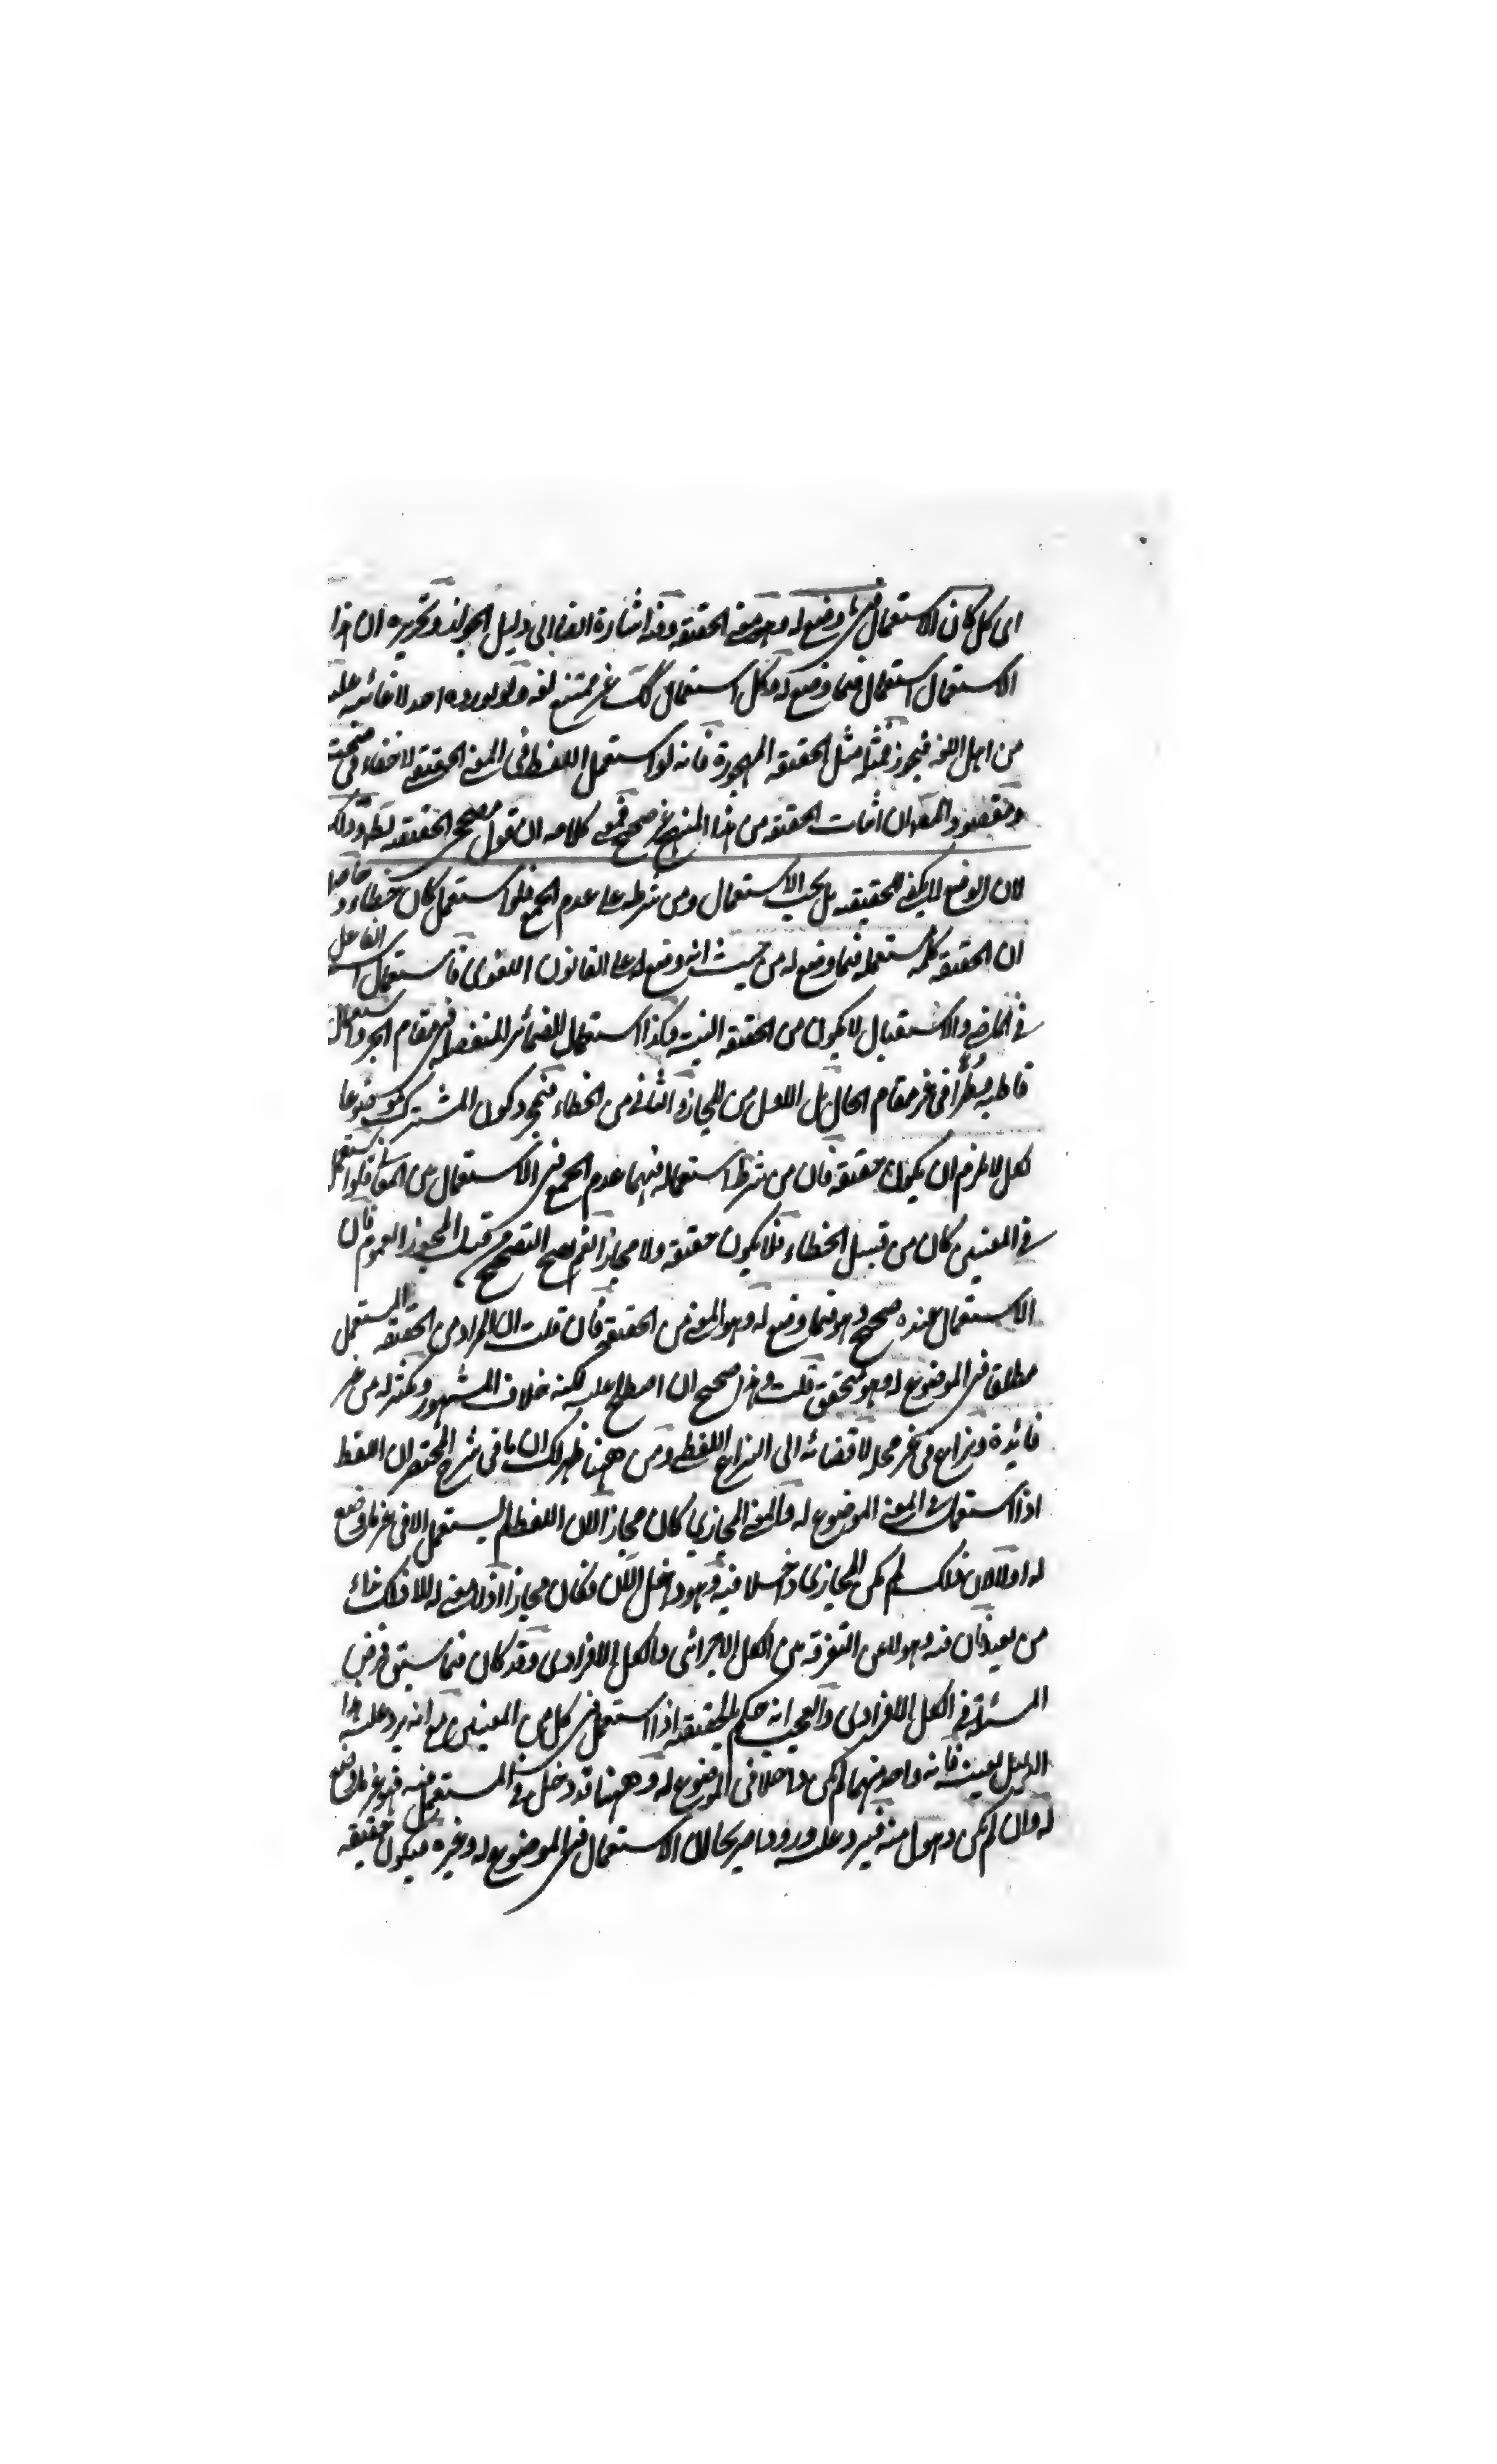 اى كل كان الاستعمال فى ما وضع له وهو معنى الحقيقة وفيه اشارة ايضا الى دليل الجواز وتحريره ان هذا
الاستعمال استعمال فيما وضع له وكل استعمال كك غير ممتنع لغة ولو لم يورده احد لا خائبة عليه
من اهل اللغة فيجوز مثله مثل الحقيقة المهجورة فانه لو استعمل اللفظ فى المعنى الحقيقى لا خفاء فى صحته
ومقصود المص ان اثبات الحقيقة من هذا المنهج غير صحيح فمعنى كلامه ان قول مصحح الحقيقة
لان الوضع لا يكفى للحقيقة بل يجب الاستعمال ومن شرطه على عدم الجمع فلو استعمل كان خطاء و حاصله
ان الحقيقة كلمة مستعملة فيما وضع له من حيث انه وضع له على القانون اللغوى فاستعمال اسم الفاعل
فى الماضى والاستقبال لا يكون من الحقيقة البتة وكذا استعمال الضمائر المنفصلة فى مقام الجر واستعمال
قاطبة وطرا فى غير مقام الحال بل الاول من المجاز و الثانى من الخطاء فبمجرد كون المشترك موضوعا
لكل لا يلزم ان يكون حقيقة فان من شرط استعماله فيهما عدم الجمع فى الاستعمال بين المعانى فلو استعمل
فى المعنيين كان من قبيل الخطاء فلا يكون حقيقة ولا مجازا نعم يصح التصحيح من قبل المجوز العموم فان
الاستعمال عنده صحيح وهو فيما وضع له وهو المعنى من الحقيقة فان قلت ان المراد من الحقيقة المستعمل
مطلق فى الموضوع له وهو متحقق قلت هذا صحيح ان اصطلح عليه لكنه خلاف المشهور من غير
فائدة ونزاع فى غير محله لافضائه الى النزاع اللفظى ومن ههنا ظهر لك ان ما فى شرح المختصر ان اللفظ
اذا استعمل فى المعنى الموضوع له والمعنى المجازى كان مجازا لان اللفظ لم يستعمل الا فى غير ما وضع
له اولا لان ذلك لم يكن المجازى داخلا فيه وهو داخل الآن فكان مجازا اذ لا معنى له الا ذلك
من بعيد فان فيه ذهولا عن التفرقة بين الكل الاجزائى والكل الافرادى وقد كان فيما سبق فرض
المسئلة فى الكل الافرادى والعجب انه حكم بالحقيقة اذا استعمل فى كل من المعنيين مع انه يرد عليه هذا
الدليل بعينه فانه واحد منهما لم يكن داخلا فى الموضوع له وههنا قد دخل فى المستعمل فيه فهو غير ما وضع
له وان لم يكن ذهول منه فيرد عليه ورودا صريحا لان الاستعمال فى الموضوع له وغيره فيكون حقيقة